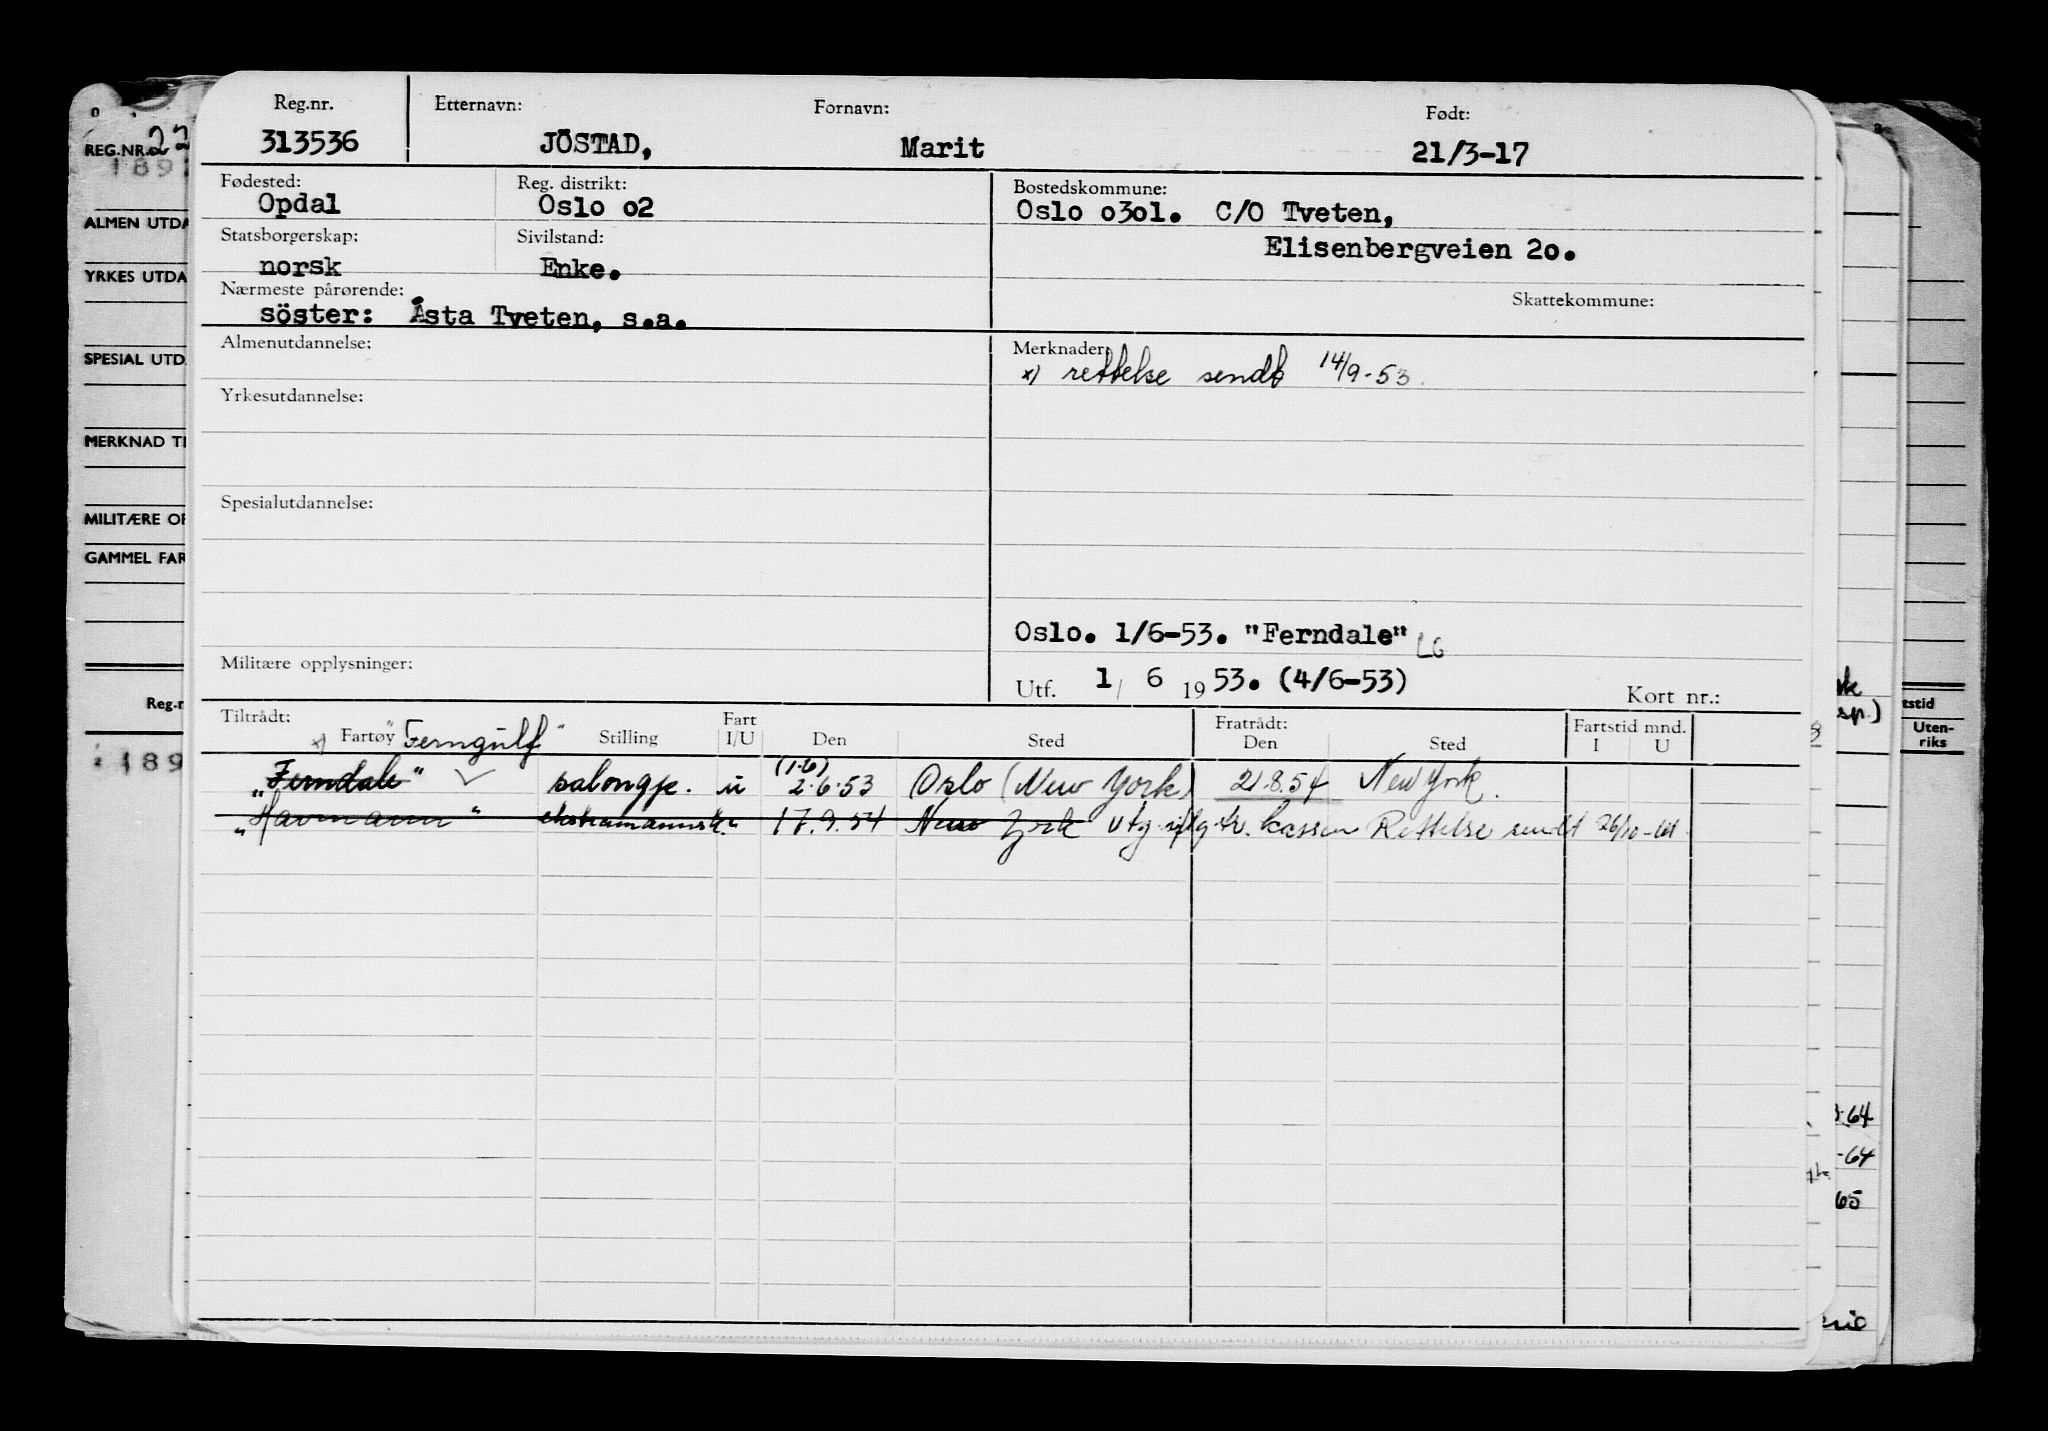 Reg.nr. Etternavn: Fornavn: Født:
313536 JÖSTAD, Marit 21/3-17
Fødested: Reg. distrikt: Bostedskommune:
Opdal Oslo o2 Oslo o3o1. C/O Tveten,
Statsborgerskap: Sivilstand: Elisenbergveien 2o.
norsk Enke.
Nærmeste pårørende: Skattekommune:
söster: Åsta Tveten, s.a.
Almenutdannelse: Merknader:
x) rettelse sendt 14/9-53.
Yrkesutdannelse:
Spesialutdannelse:
Oslo. 1/6-53. "Ferndale" LG
Militære opplysninger:
Utf. 1/ 6 1953. (4/6-53) Kort nr.:
Tiltrådt: Fart Fratrådt: Fartstid mnd.
x) Fartøy "Ferngulf" Stilling I/U Den Sted Den Sted I U
(1.6)
"Ferndale" salongpe. u 2.6.53 Oslo (New York) 21.8.54 New York.
"Havmann" 17.9.54 New York utg. Rettelse sendt 26/10-
REG.NR. 22
189
ALMEN UTDA
YRKES UTDA
SPESIAL UTD
MERKNAD TI
MILITÆRE OP
GAMMEL FAR
Reg.r
189
sp.)
tstid
Uten-
riks
-64
-64
65